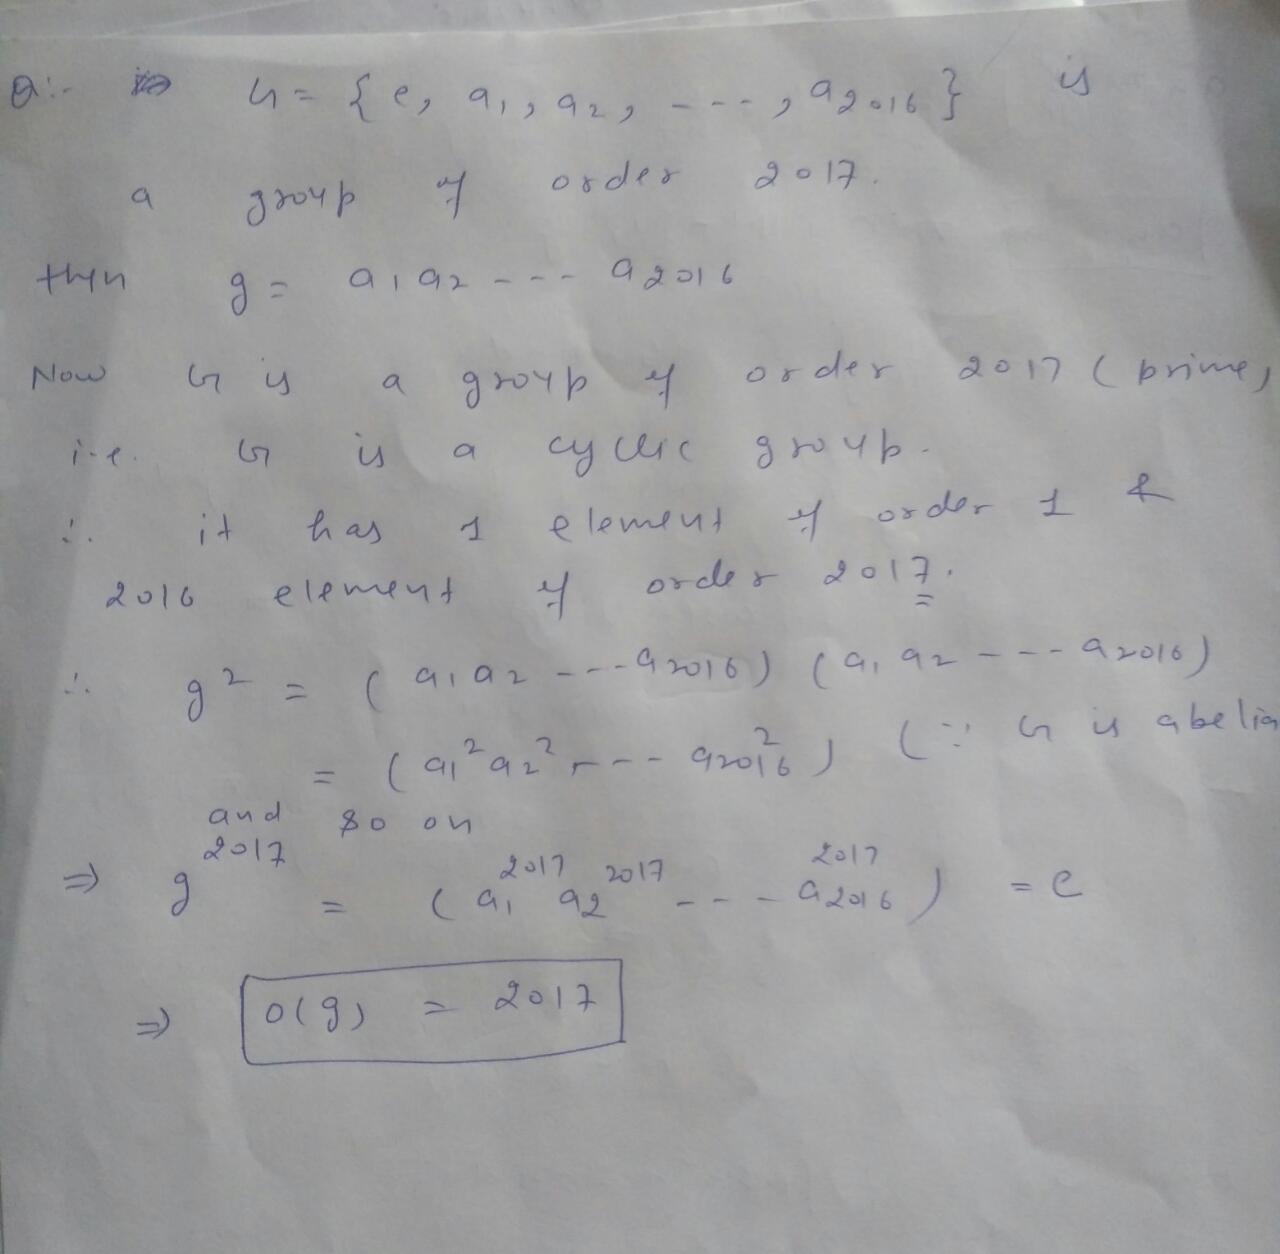 Q:- G = { e, a₁, a₂, - - - -, a₂₀₁₆ } is
a group of order 2017.
then g = a₁ a₂ - - - - a₂₀₁₆
Now G is a group of order 2017 ( prime,
i.e. G is a cyclic group.
∴ it has 1 element of order 1 &
2016 element of order 2017.
∴ g² = ( a₁ a₂ - - - a₂₀₁₆ ) ( a₁ a₂ - - - - a₂₀₁₆ )
= ( a₁² a₂² - - - a₂₀₁₆² ) ( ∵ G is abelia
and so on
⇒ g²⁰¹⁷ = ( a₁²⁰¹⁷ a₂²⁰¹⁷ - - - a₂₀₁₆²⁰¹⁷ ) = e
⇒ o(g) = 2017